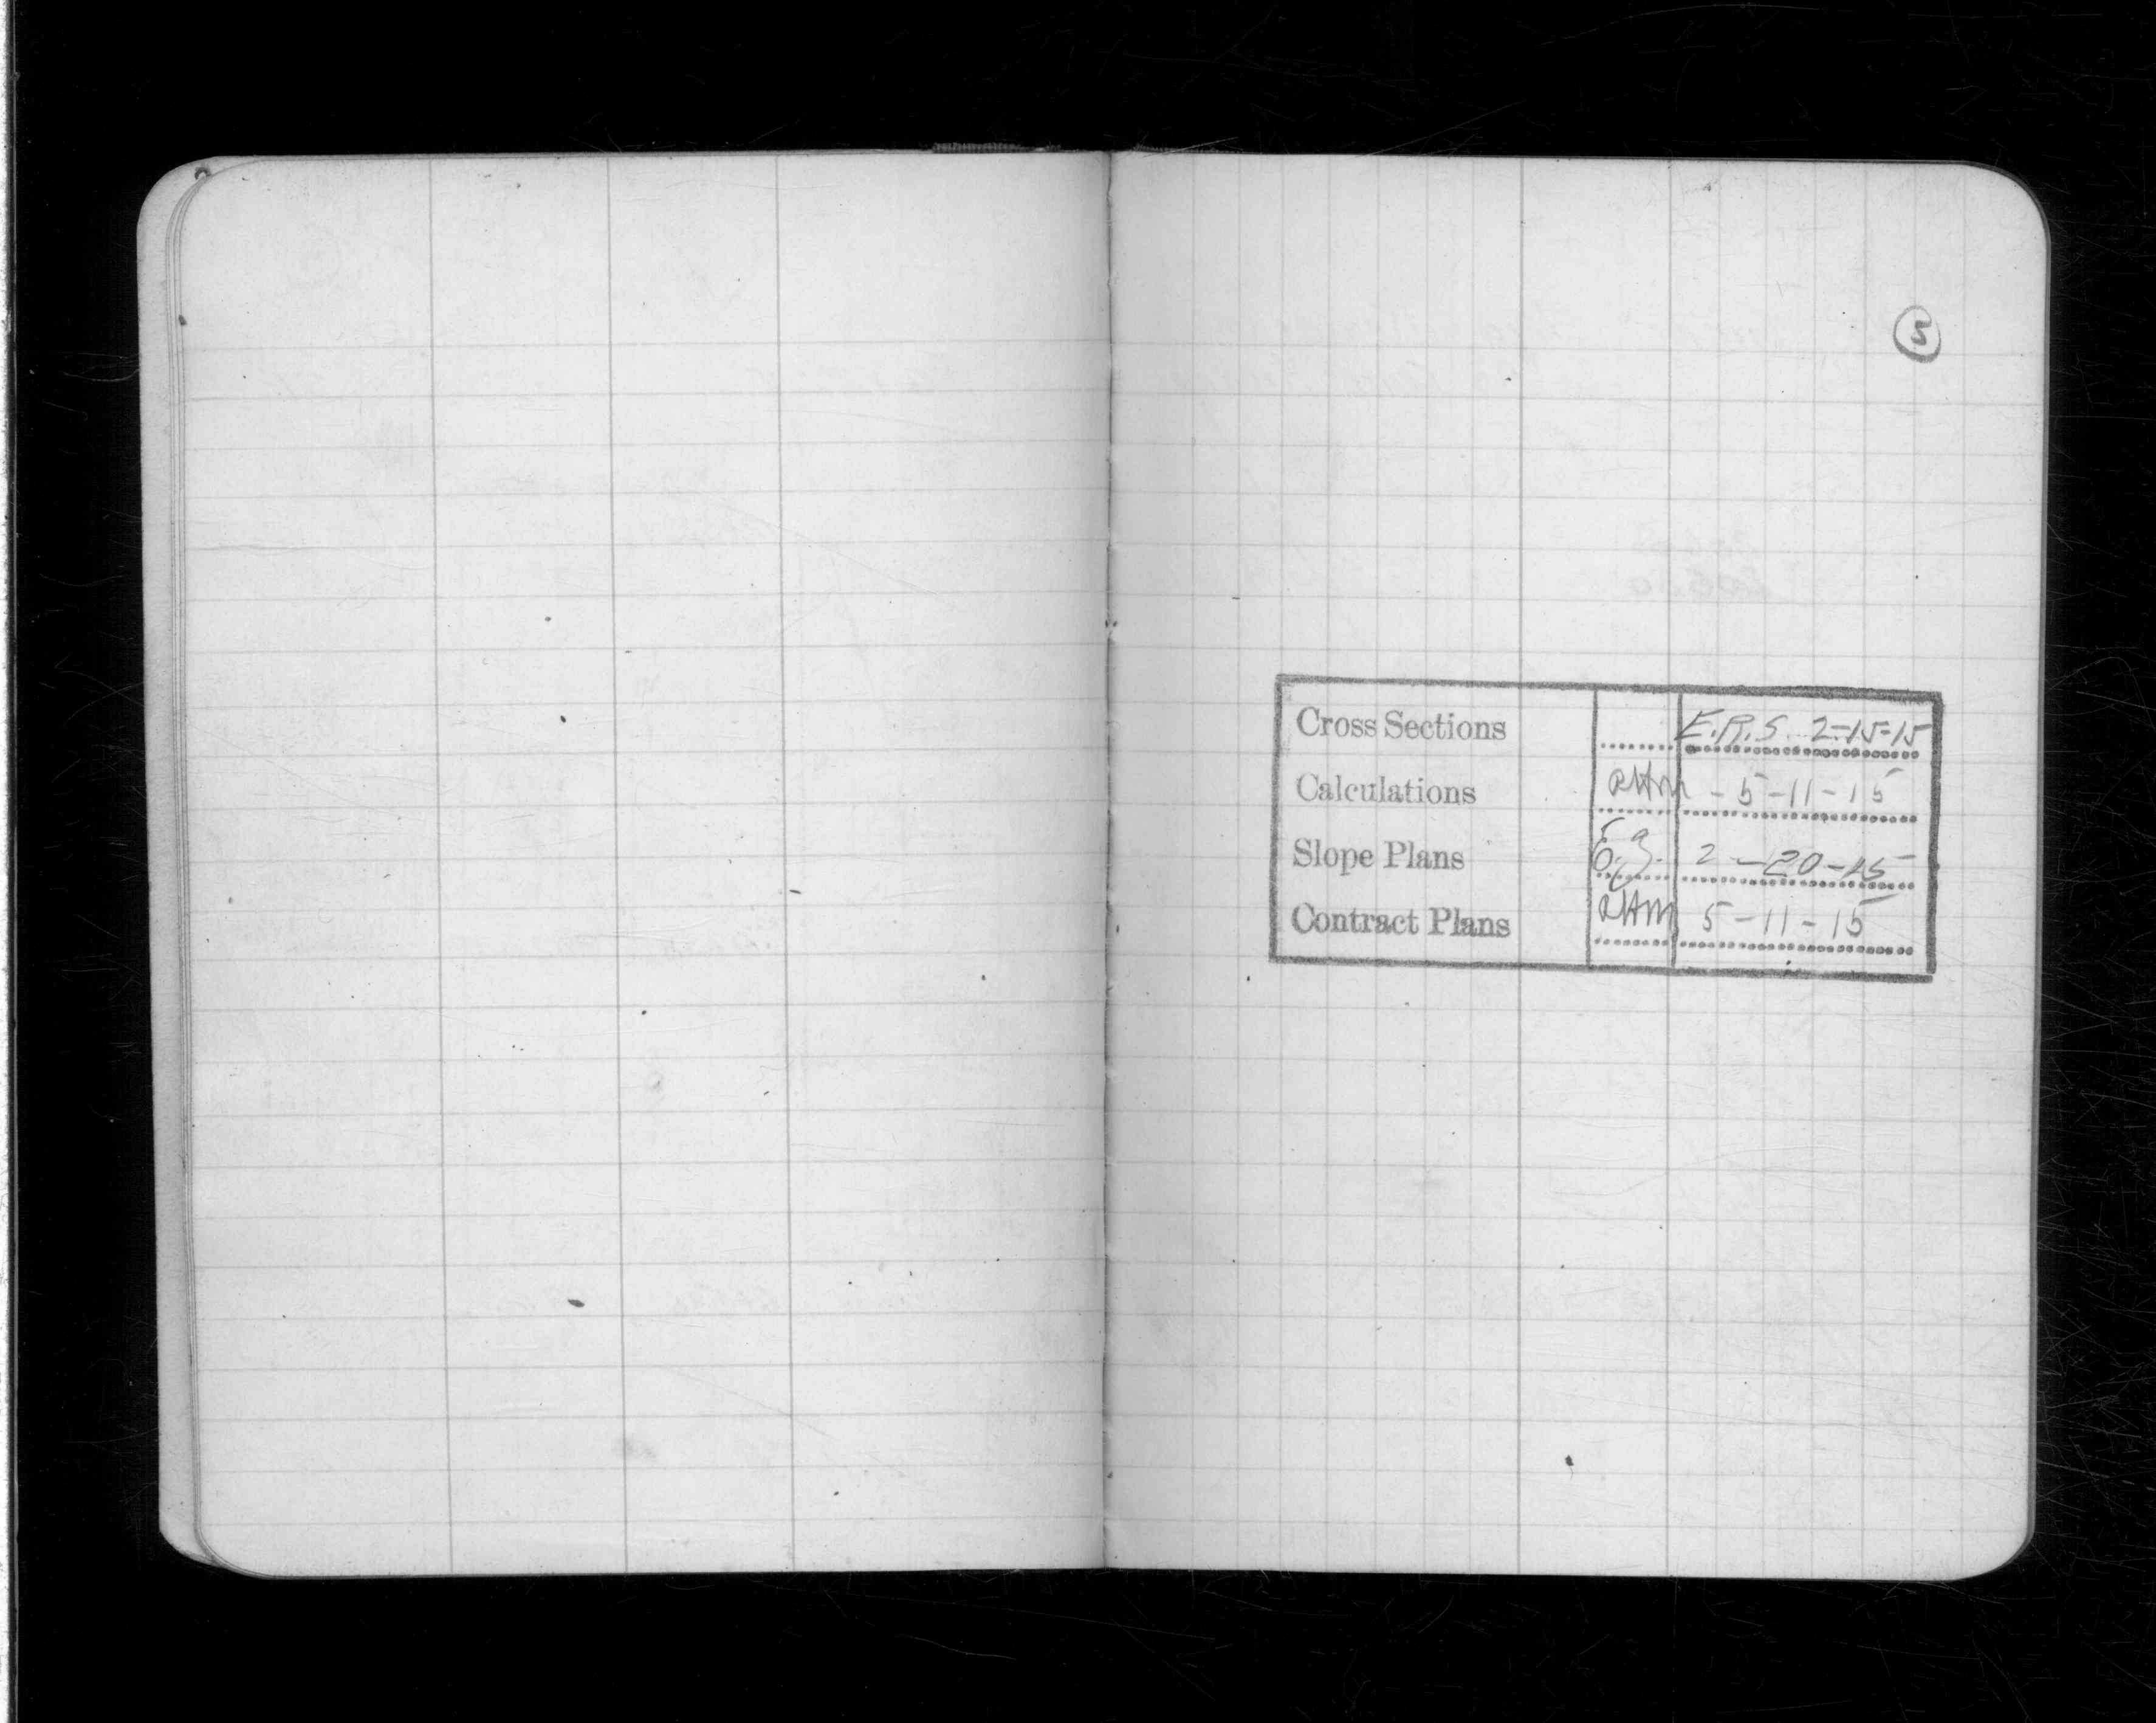 5
Cross Sections E.R.S. 2-15-15
Calculations RHM - 5-11-15
Slope Plans 2-20-15
Contract Plans RHM 5-11-15